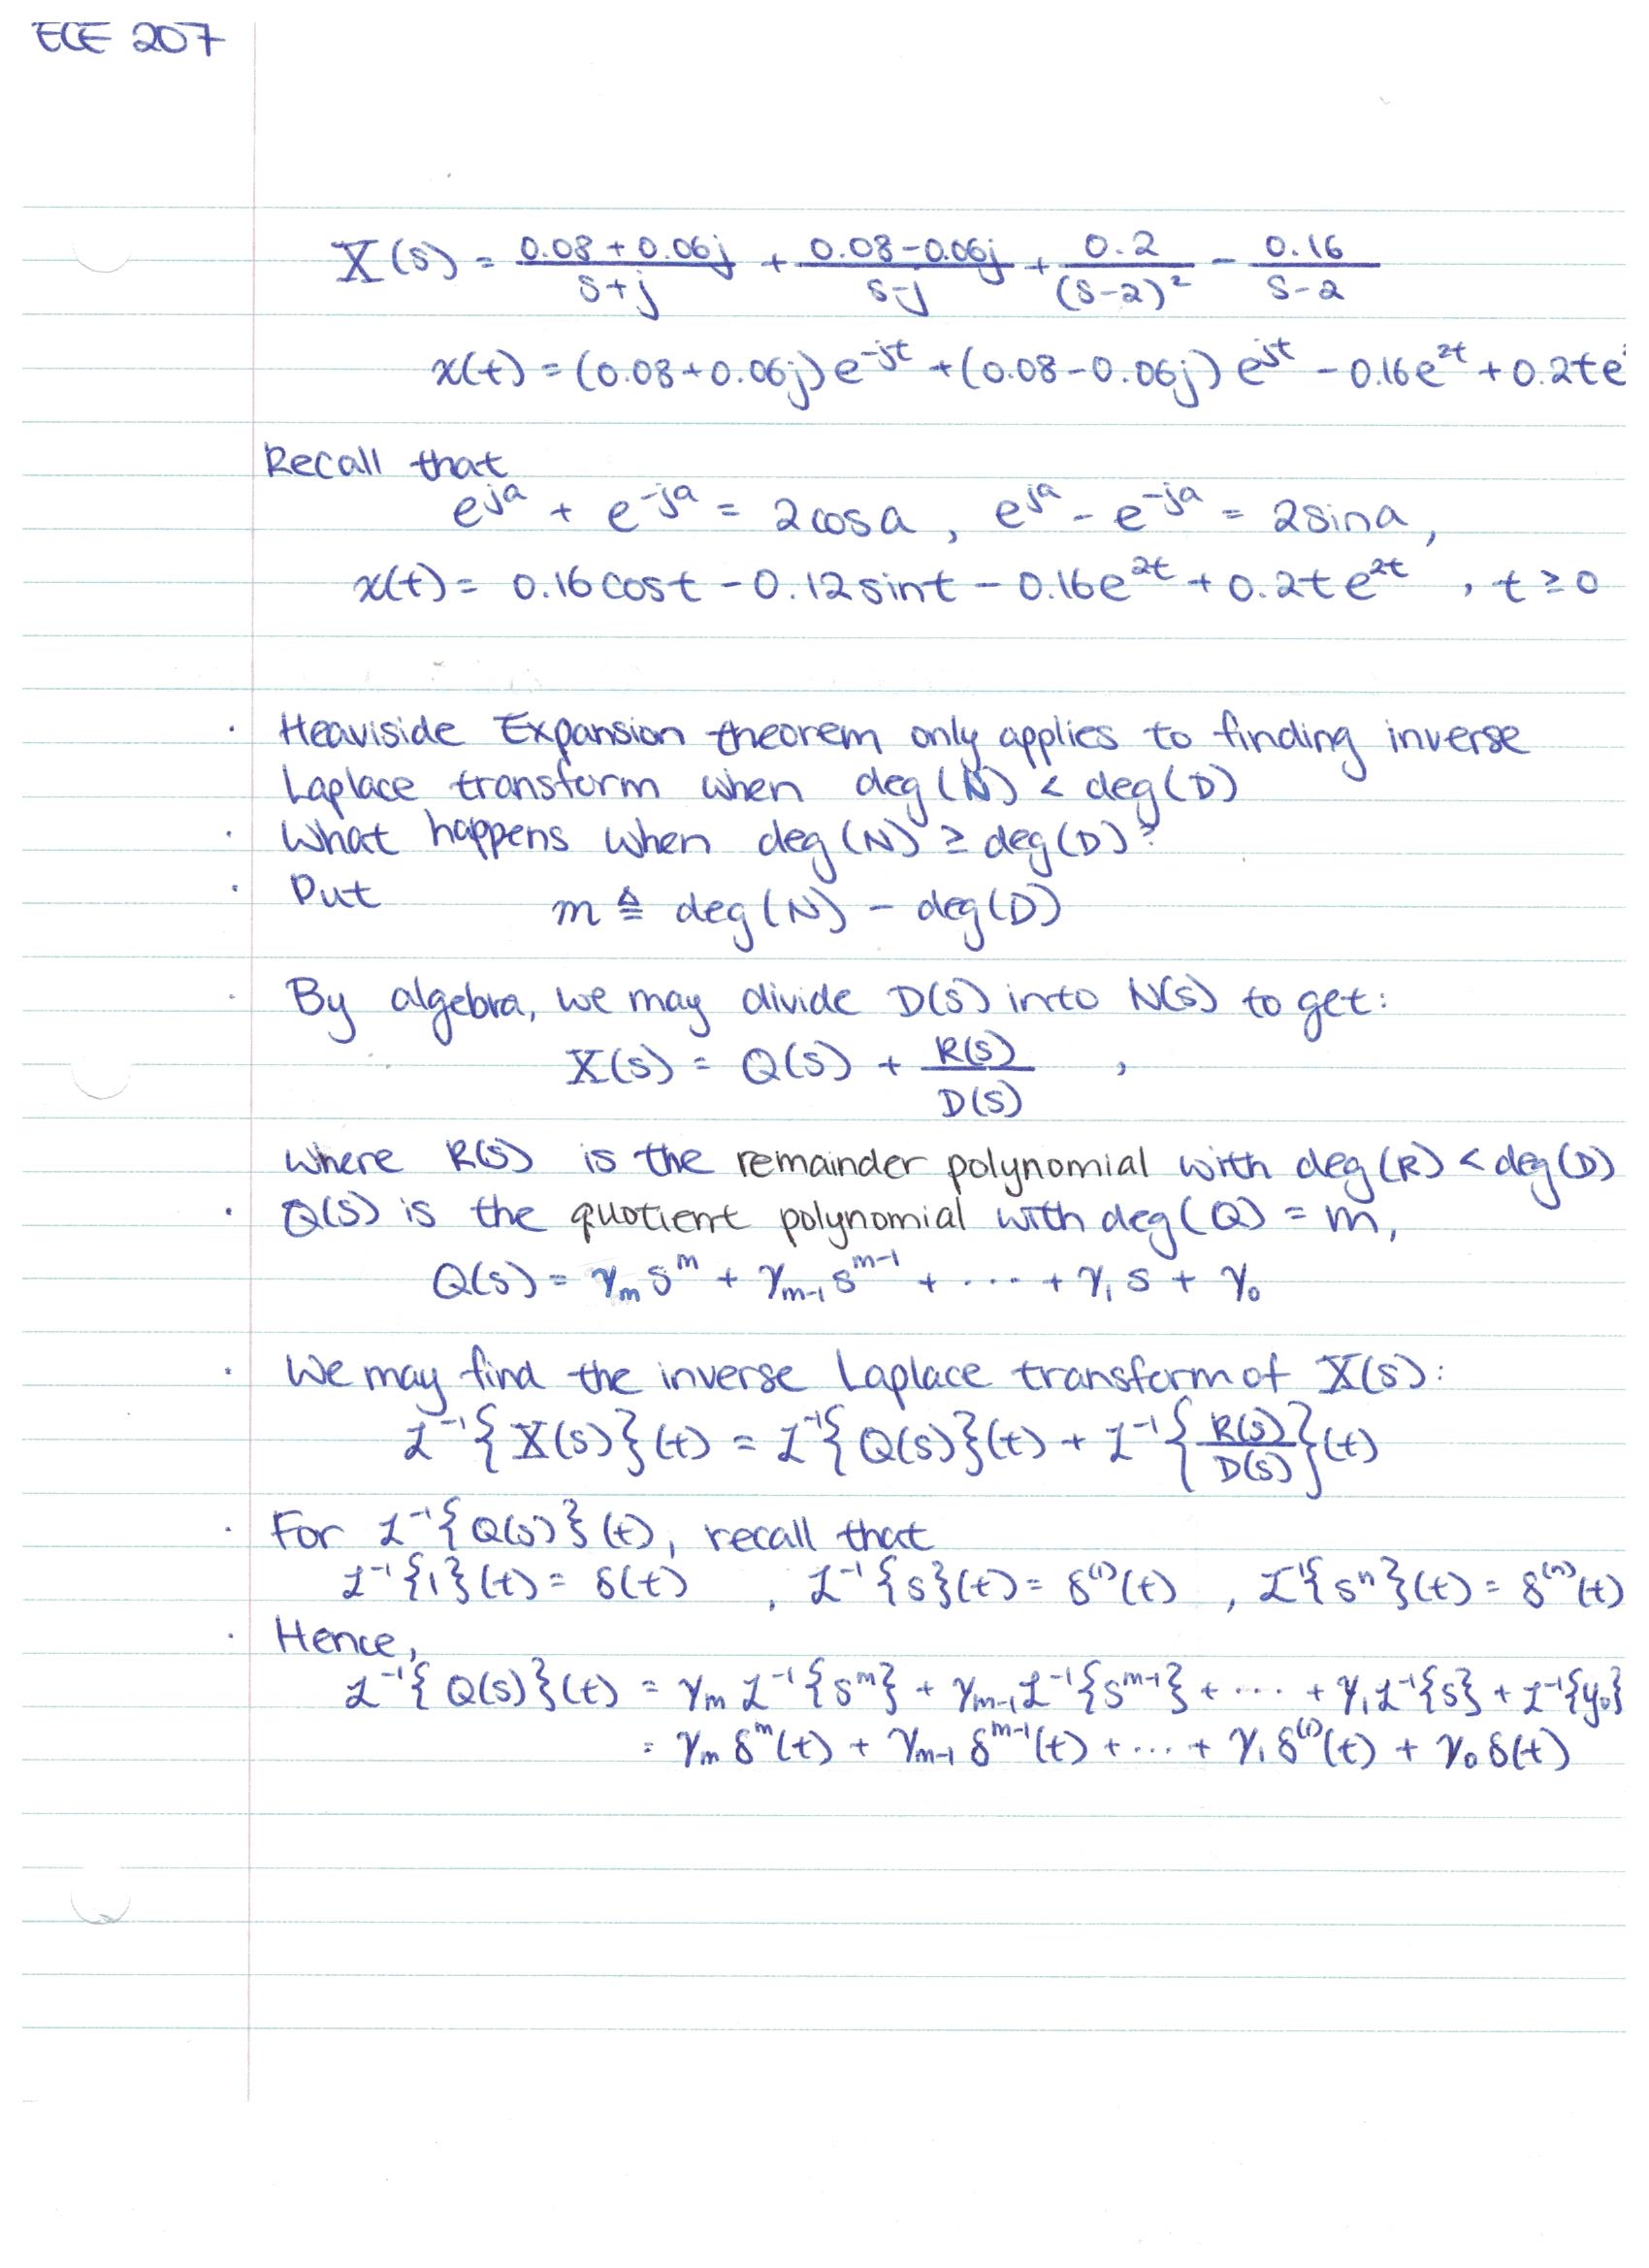 ECE 207
X(s) = (0.08 + 0.06j)/(s+j) + (0.08 - 0.06j)/(s-j) + 0.2/(s-2)² - 0.16/(s-2)
x(t) = (0.08 + 0.06j) e^{-jt} + (0.08 - 0.06j) e^{jt} - 0.16e^{2t} + 0.2te
Recall that
e^{ja} + e^{-ja} = 2cosa , e^{ja} - e^{-ja} = 2sina ,
x(t) = 0.16cost - 0.12sint - 0.16e^{2t} + 0.2te^{2t} , t ≥ 0
· Heaviside Expansion theorem only applies to finding inverse
Laplace transform when deg(N) < deg(D)
· What happens when deg(N) ≥ deg(D)?
· Put m ≜ deg(N) - deg(D)
· By algebra, we may divide D(s) into N(s) to get:
X(s) = Q(s) + R(s)/D(s) ,
where R(s) is the remainder polynomial with deg(R) < deg(D)
· Q(s) is the quotient polynomial with deg(Q) = m,
Q(s) = γ_m s^m + γ_{m-1} s^{m-1} + .... + γ_1 s + γ_0
· We may find the inverse Laplace transform of X(s):
ℒ^{-1}{X(s)}(t) = ℒ^{-1}{Q(s)}(t) + ℒ^{-1}{R(s)/D(s)}(t)
· For ℒ^{-1}{Q(s)}(t), recall that
ℒ^{-1}{1}(t) = δ(t) , ℒ^{-1}{s}(t) = δ^{(1)}(t) , ℒ^{-1}{s^n}(t) = δ^{(n)}(t)
· Hence,
ℒ^{-1}{Q(s)}(t) = γ_m ℒ^{-1}{s^m} + γ_{m-1} ℒ^{-1}{s^{m-1}} + .... + γ_1 ℒ^{-1}{s} + ℒ^{-1}{γ_0}
= γ_m δ^m(t) + γ_{m-1} δ^{m-1}(t) + .... + γ_1 δ^{(1)}(t) + γ_0 δ(t)